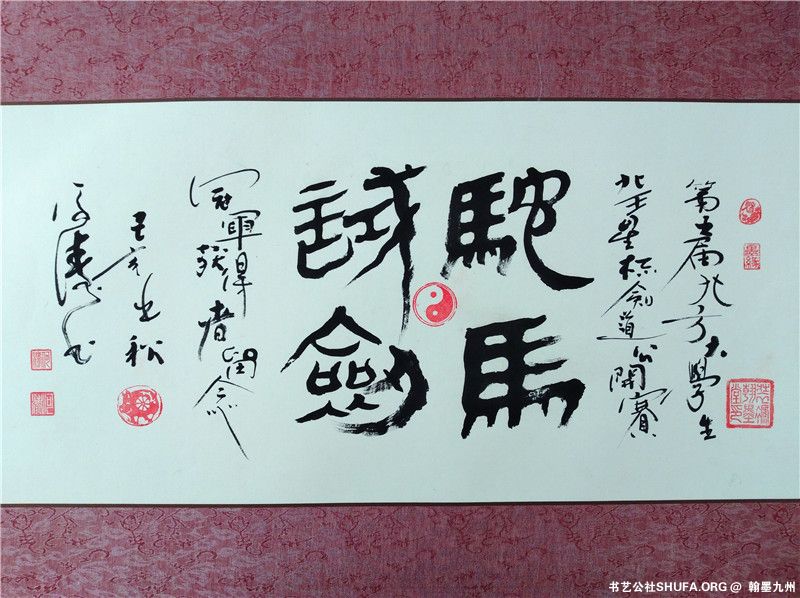 第五届北方大學生
北王星杯劍道公開賽
馳馬
試劍
冠軍獲得者留念
己亥之秋
书艺公社SHUFA.ORG @ 翰墨九州